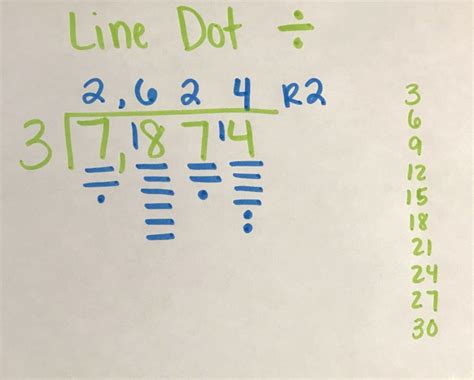 Line Dot ÷
2,624 R2
3 7,18714
3
6
9
12
15
18
21
24
27
30